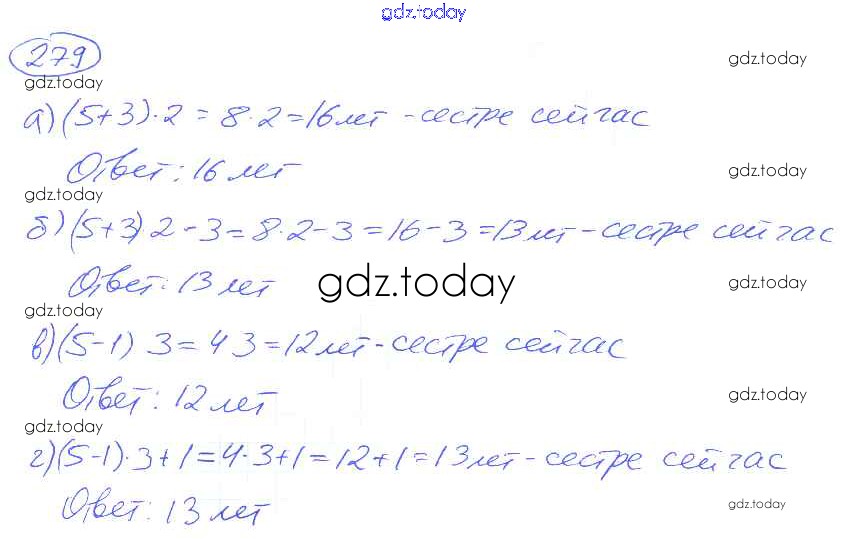 gdz.today
279
gdz.today
gdz.today
а) (5+3)·2 = 8·2=16 лет - сестре сейчас
Ответ: 16 лет
gdz.today
gdz.today
б) (5+3) 2-3=8·2-3=16-3=13 лет - сестре сейчас
Ответ: 13 лет
gdz.today
gdz.today
gdz.today
в) (5-1) 3=4 3=12 лет - сестре сейчас
Ответ: 12 лет
gdz.today
gdz.today
г) (5-1)·3+1=4·3+1=12+1=13 лет - сестре сейчас
Ответ: 13 лет
gdz.today